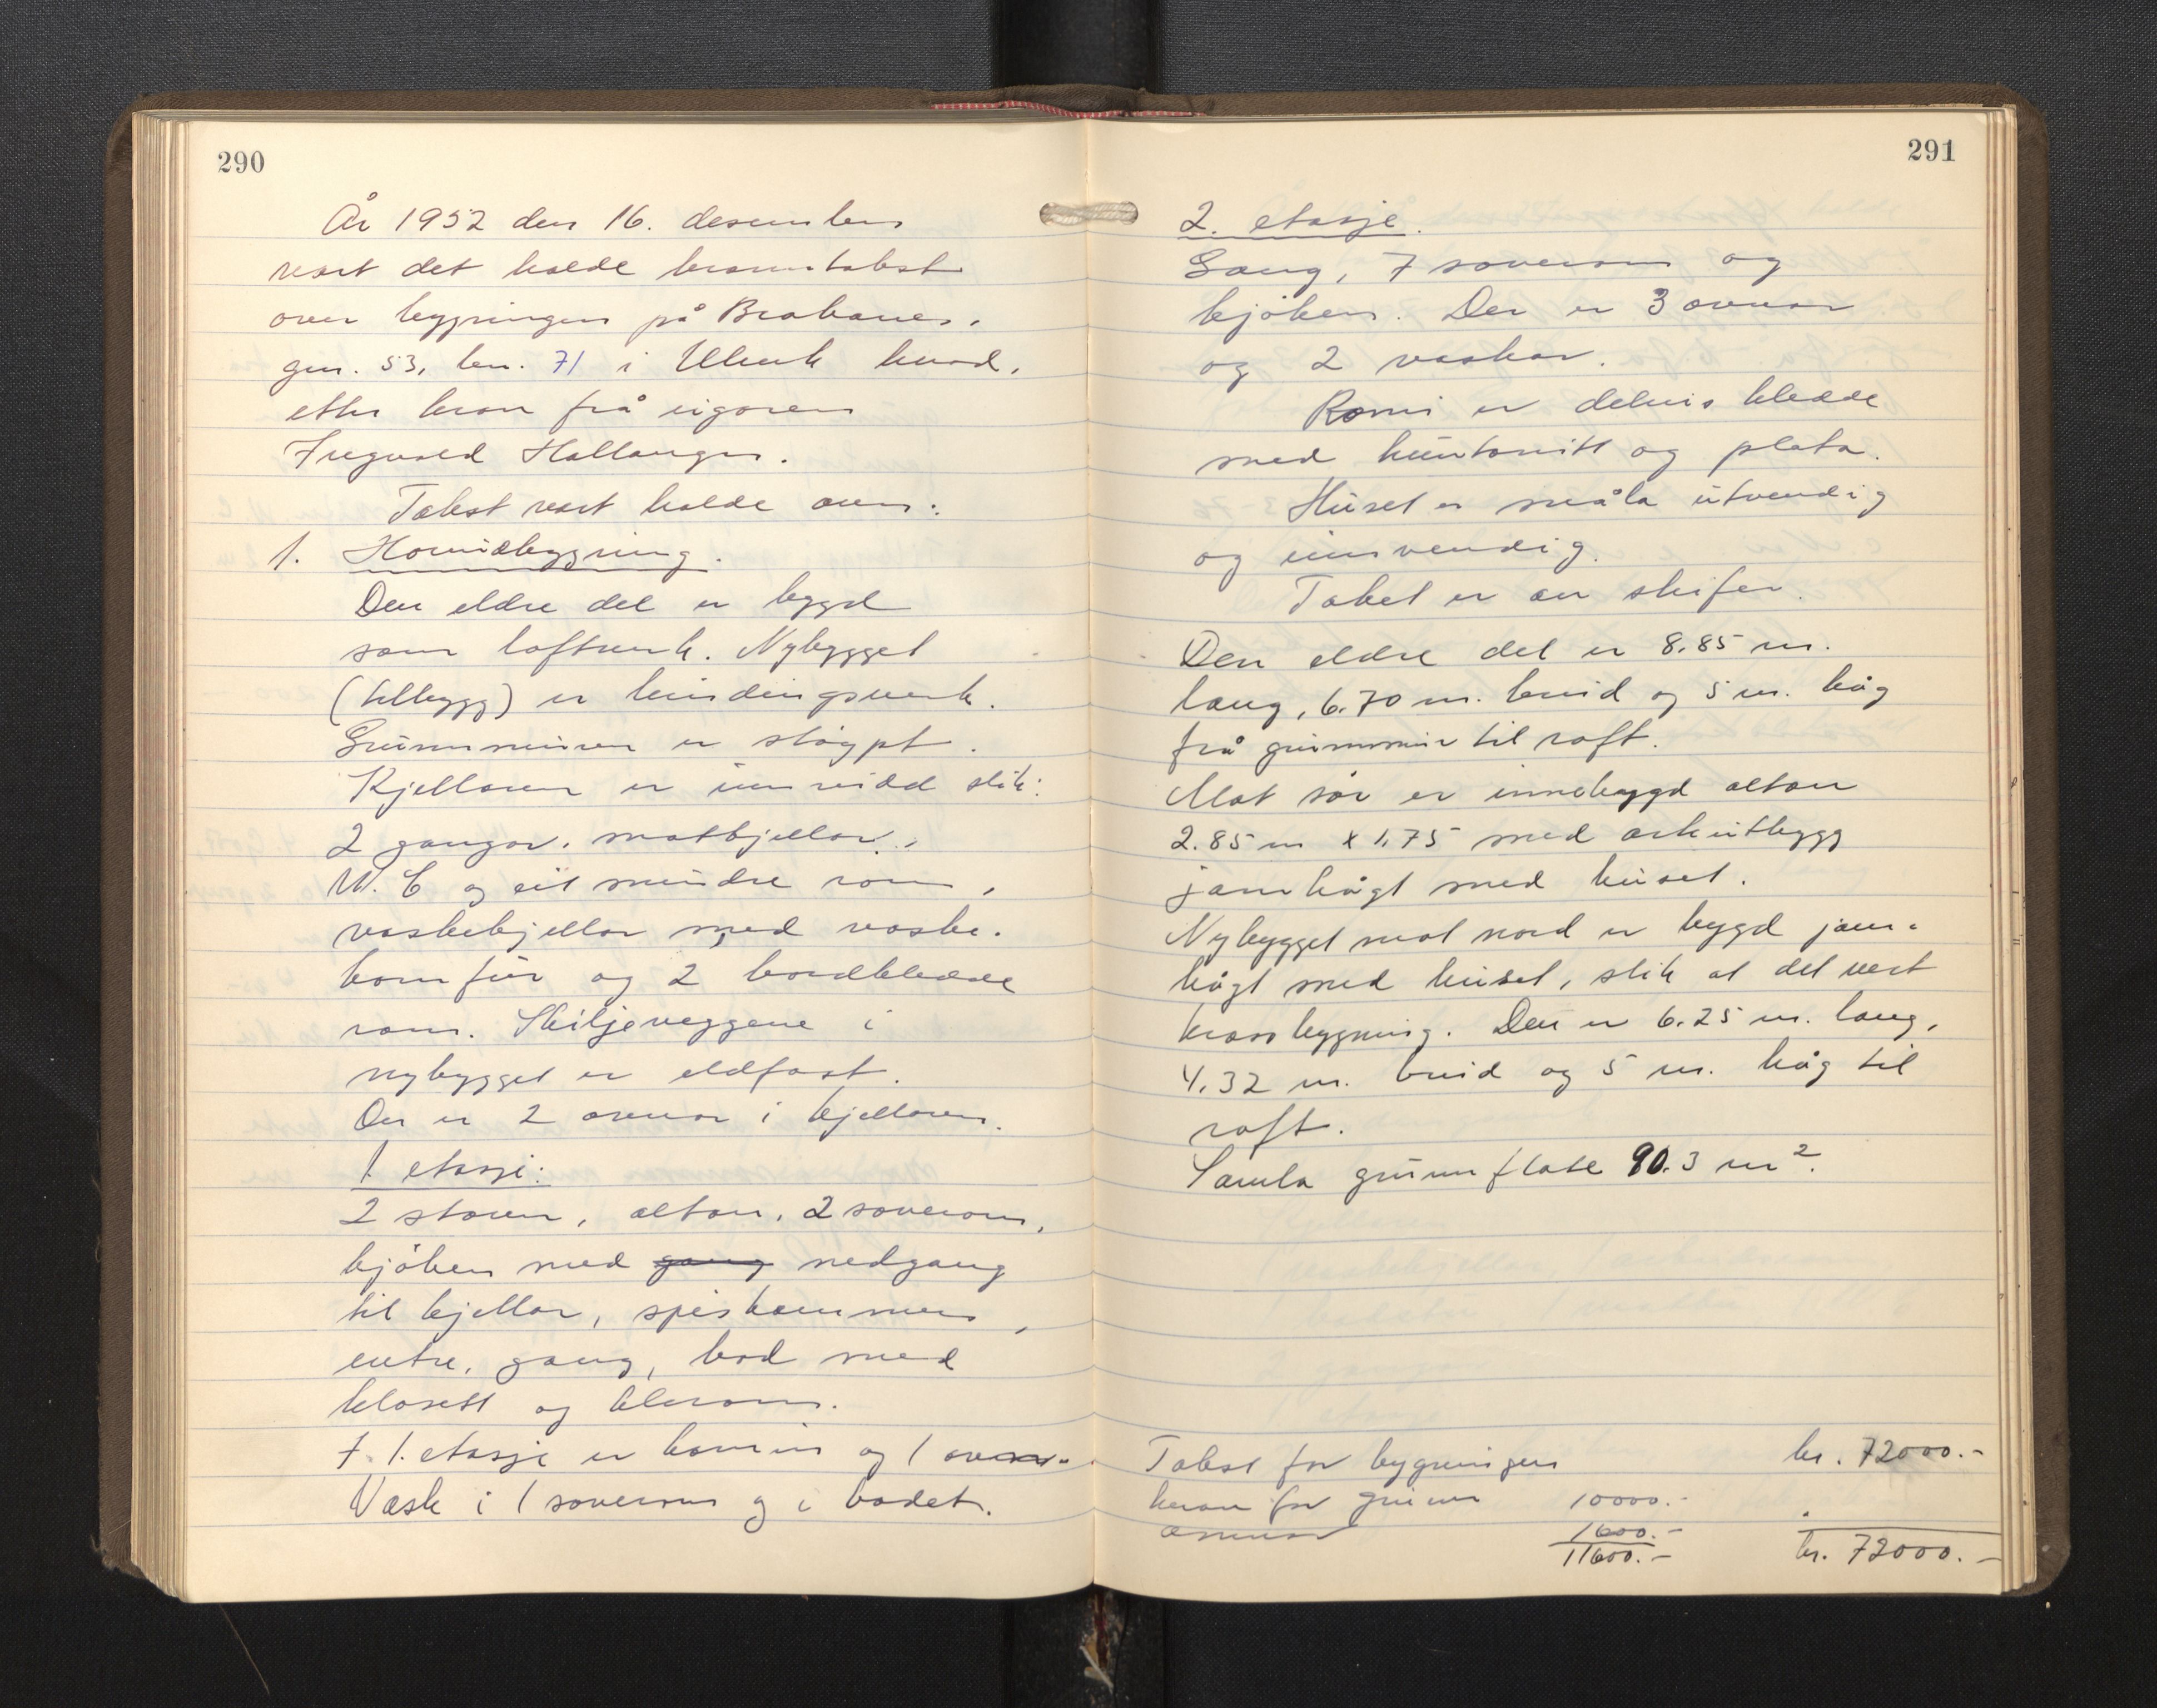 290
År 1952 den 16. desember
vart det halde branntakst
over bygningen på Brabanes,
gnr. 53, bnr. 71 i Ulvik herad,
etter krav frå eigaren
Ingvald Hallanger.
Takst vart halde over:
1. Hovudbygning.
Den eldre del er bygd
som loftverk. Nybygget
(tilbygg) er bindingsverk.
Grunnmuren er støypt.
Kjellaren er innreidd slik:
2 gangar, matkjellar,
W.C og eit mindre rom,
vaskekjellar med vaske-
komfur og 2 bordklædde
rom. Skiljeveggene i
nybygget er eldfast.
Der er 2 omnar i kjellaren.
1 etasje:
2 stover, altan, 2 soverom,
kjøken med gang nedgang
til kjellar, spiskammer,
entre, gang, bad med
klosett og klerom.
I 1. etasje er kamin og 1 omn.
Vask i 1 soverom og i badet.
291
2. etasje.
Gang, 7 soverom og
kjøken. Der er 3 omnar
og 2 vaskar.
Romi er delvis klædde
med huntonitt og plata.
Huset er måla utvendig
og innvendig.
Taket er av skifer.
Den eldre del er 8.85 m.
lang, 6.70 m. breid og 5 m. høg
frå grunnmur til raft.
Mot sør er innebygd altan
2.85 m x 1.75 med arkutbygg
jamhøgt med huset.
Nybygget mot nord er bygd jam-
høgt med huset, slik at det vert
krossbygning. Den er 6.25 m. lang,
4.32 m. breid og 5 m. høg til
raft.
Samla grunnflate 90.3 m².
Takst for bygningen kr. 72000.-
herav for grunn 10000.-
omnar 1600.-
11600.- kr. 72000.-